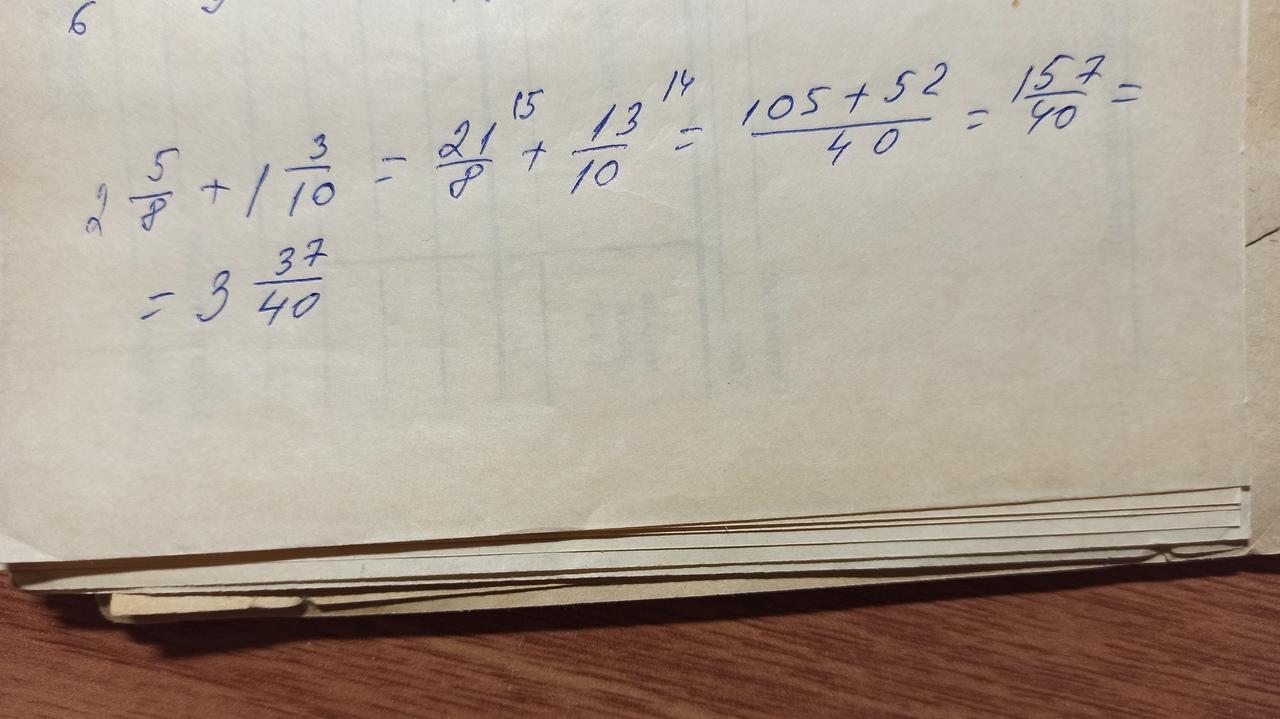 6
2 5/8 + 1 3/10 = 21/8 15 + 13/10 14 = (105+52)/40 = 157/40 =
= 3 37/40